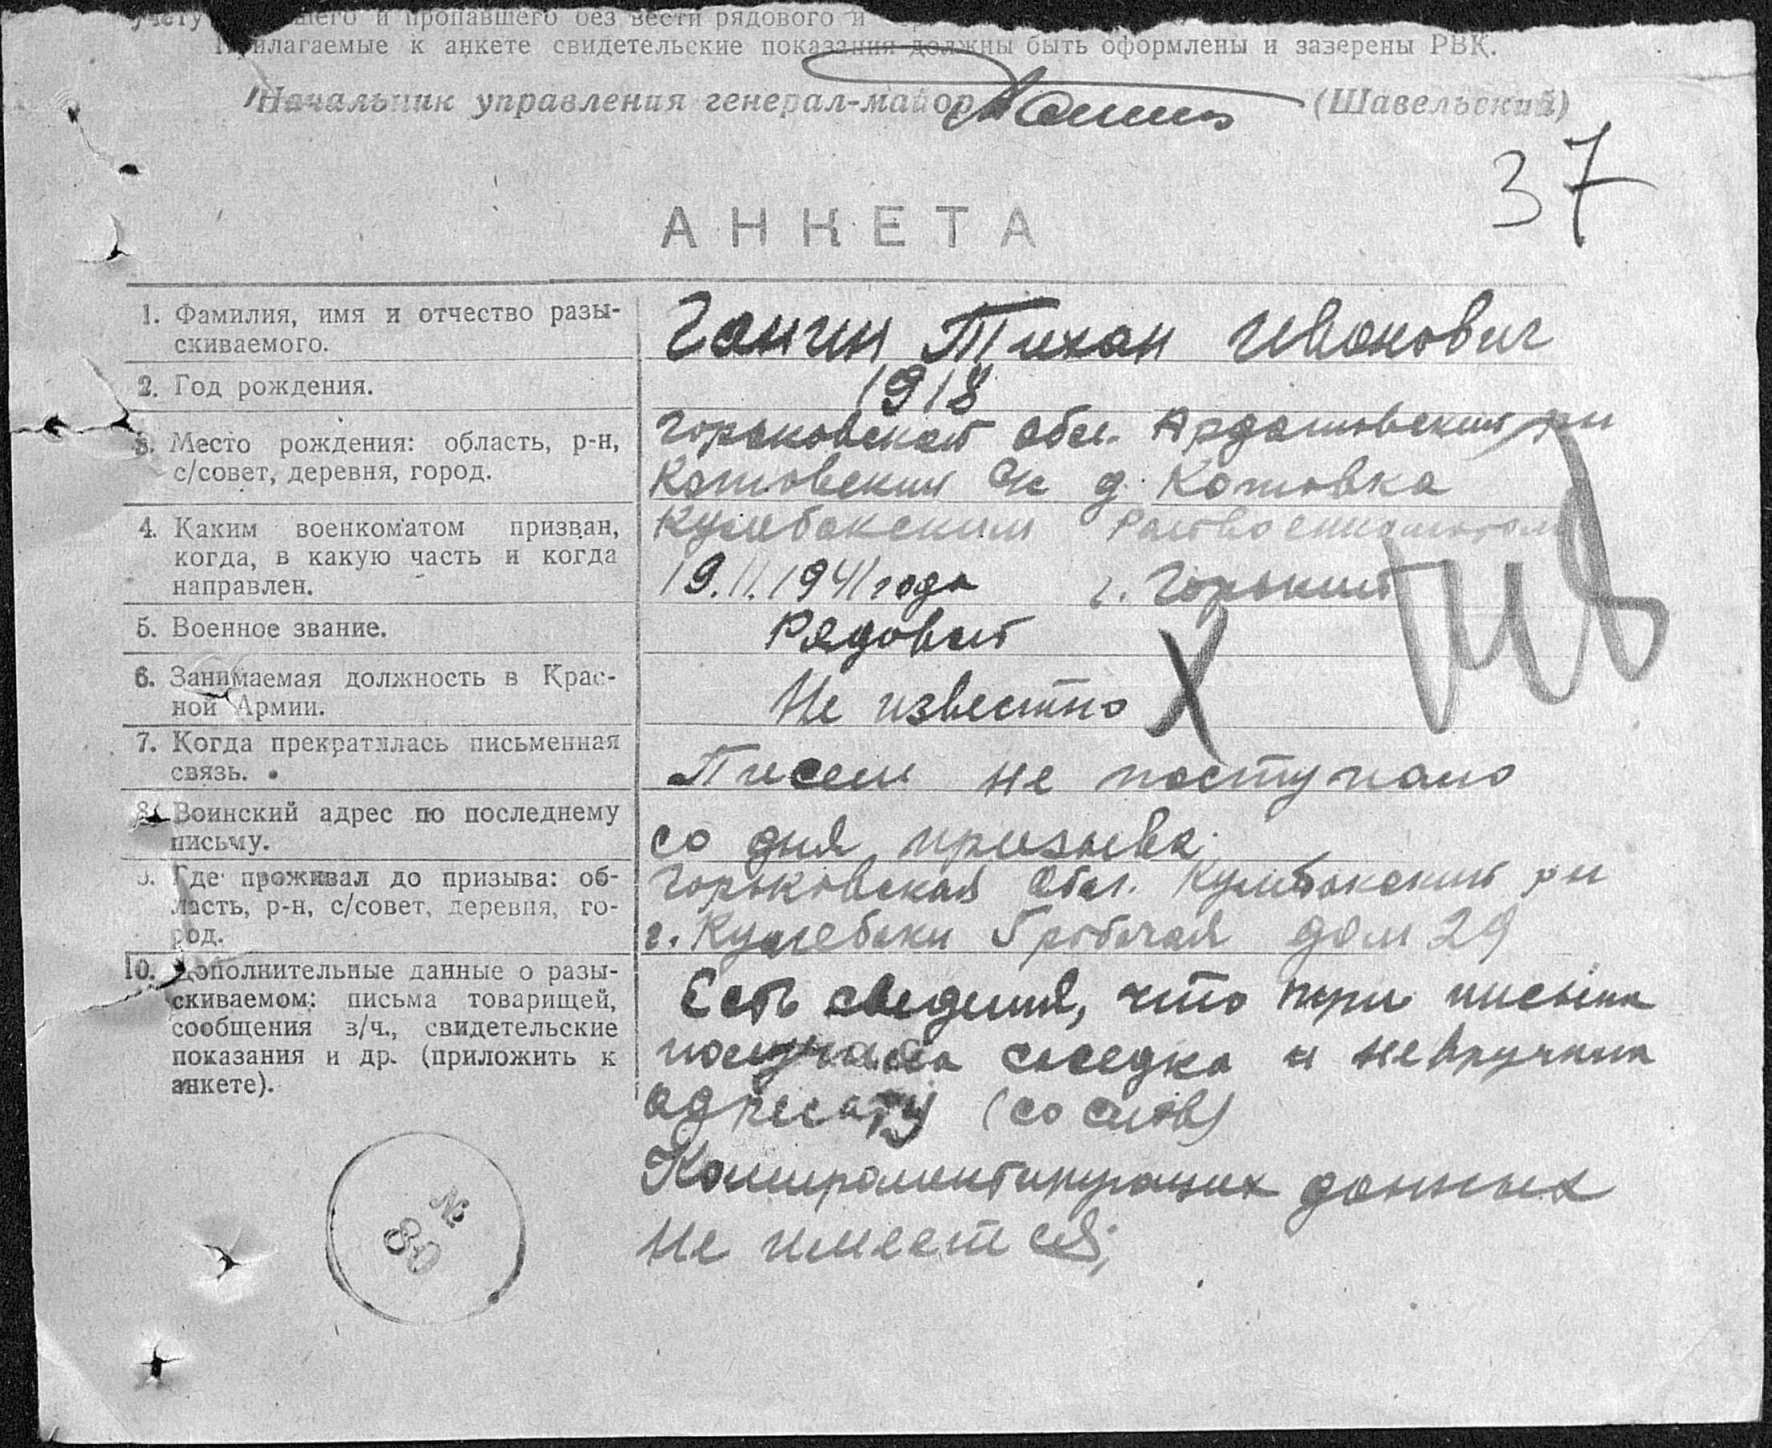 учету пропавшего без вести рядового и
Прилагаемые к анкете свидетельские показания должны быть оформлены и заверены РВК.
Начальник управления генерал-майор (Шавельский)
37
АНКЕТА
1. Фамилия, имя и отчество разы-
скиваемого.
Ганин Тихан Иванович
2. Год рождения.
1918
3. Место рождения: область, р-н,
с/совет, деревня, город.
Горьковской обл. Ардатовский рн
Котовский с/с д. Котовка
4. Каким военкоматом призван,
когда, в какую часть и когда
направлен.
Кулебакским Райвоенкоматом
19.11.1941 года г. Горький
5. Военное звание.
Рядовой
6. Занимаемая должность в Крас-
ной Армии.
Не известно
7. Когда прекратилась письменная
связь.
Писем не поступало
8. Воинский адрес по последнему
письму.
со дня призыва.
9. Где проживал до призыва: об-
ласть, р-н, с/совет, деревня, го-
род.
Горьковская обл. Кулебакский рн
г. Кулебаки дом 29
10. Дополнительные данные о разы-
скиваемом: письма товарищей,
сообщения в/ч., свидетельские
показания и др. (приложить к
анкете).
Есть сведения, что три письма
получила соседка и не вручила
адресату (со слов)
Компроментирующих данных
не имеется;
№
80